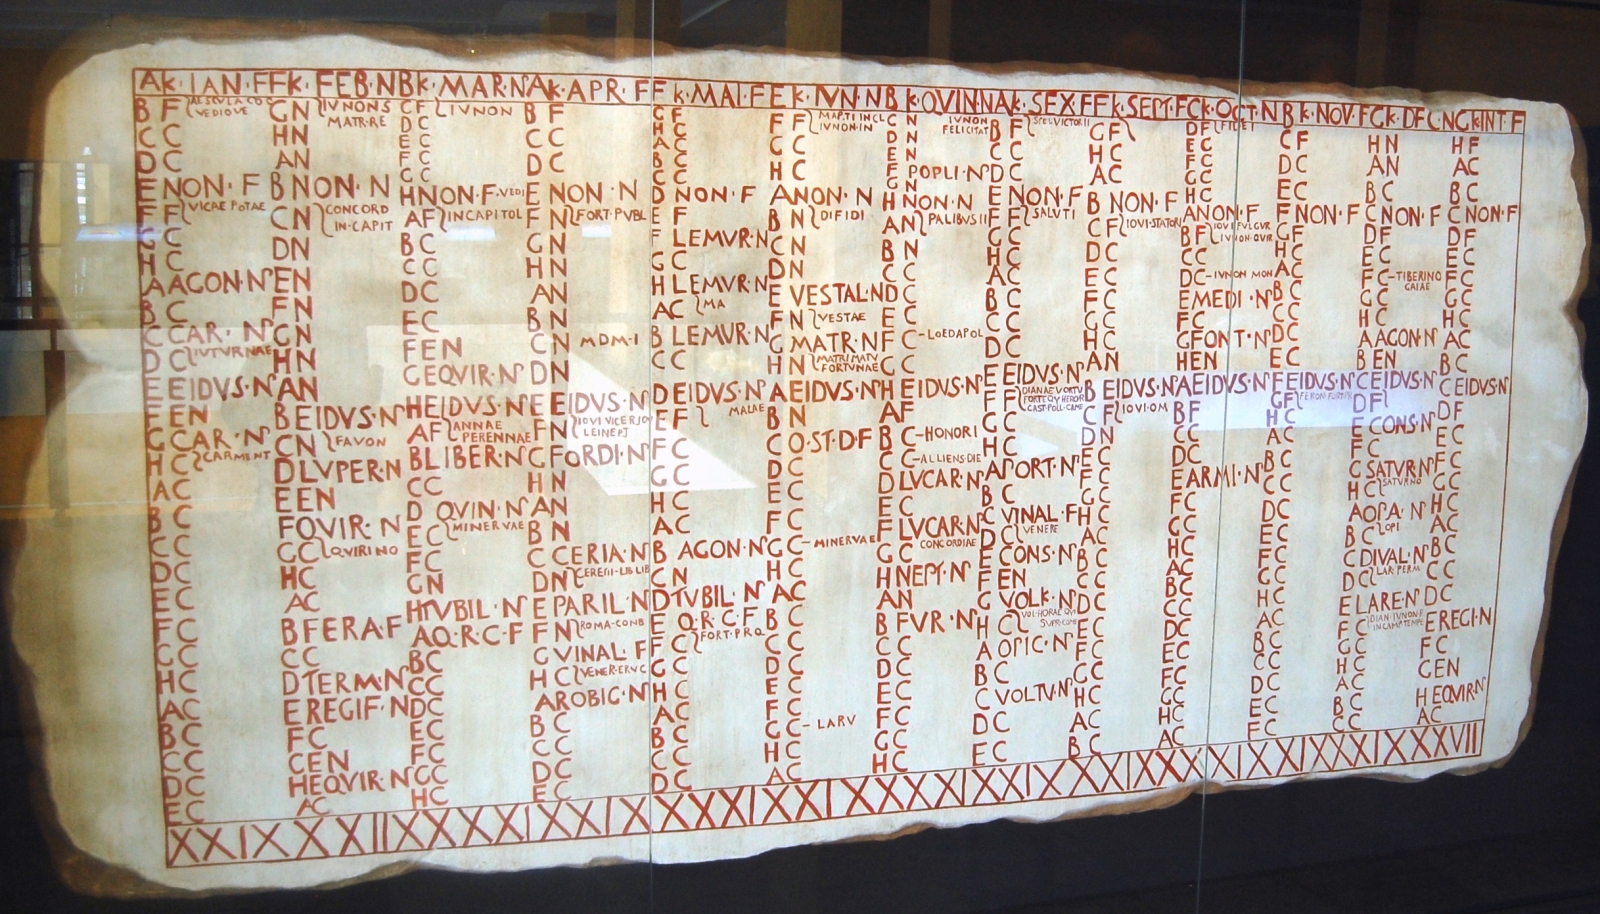 AK·IAN·F FK·FEB·N BK·MAR·N AK·APR·F FK·MAI·F EK·IVN·N BK·QVIN·N AK·SEX·F FK·SEPT·F CK·OCT·N BK·NOV·F GK·DEC·N GK·INT·F
B F
VEDIOVE
C C
D C
E NON·F
VICAE POTAE
F F
G C
H C
A AGON·N
B C
C CAR·N
D C
IVTVRNAE
E EIDVS·N
F EN
G CAR·N
H C
CARMENT
A C
B C
C C
D C
E C
F C
G C
H C
A C
B C
C C
D C
E C
G N
IVNONS
MATR·RE
H N
A N
B NON·N
C N
CONCORD
IN·CAPIT
D N
E N
F N
G N
H N
A N
B EIDVS·N
C N
FAVON
D LVPER·N
E EN
F QVIR·N
G C
QVIRINO
H C
A C
B FERA·F
C C
D TERM·N
E REGIF·N
F C
G EN
H EQVIR·N
A C
C F
IVNON
D C
E C
F C
G C
H NON·F
VEDI
A F
IN CAPITOL
B C
C C
D C
E C
F EN
G EQVIR·N
H EIDVS·N
A F
ANNAE
PERENNAE
B LIBER·N
C C
D QVIN·N
E C
MINERVAE
F C
G N
H TVBIL·N
A Q·R·C·F
B C
C C
D C
E C
F C
G C
H C
B F
C C
D C
E NON·N
F N
FORT·PVBL
G N
H N
A N
B N
C N
MDM·I
D N
E EIDVS·N
F N
G FORDI·N
H N
A N
B N
C CERIA·N
D N
CERERI·LIB·LIB
E PARIL·N
F N
ROMA·COND
G VINAL·F
H C
VENER·ERVC
A ROBIG·N
B C
C C
D C
E C
G F
H C
A C
B C
D NON·F
E F
F LEMVR·N
G C
H LEMVR·N
A C
MA
B LEMVR·N
C C
D EIDVS·N
E F
MAIAE
F C
G C
H C
A C
B AGON·N
C N
D TVBIL·N
E Q·R·C·F
F C
FORT·PR·Q
G C
H C
A C
B C
C C
D C
F F
IVNON·IN
G C
H C
A NON·N
B N
DIFIDI
C N
D N
E VESTAL·N
F N
VESTAE
G MATR·N
H N
MATRI MATV
FORTVNAE
A EIDVS·N
B N
C Q·ST·D·F
D C
E C
F C
G C
MINERVAE
H C
A C
B C
C C
D C
E C
F C
G C
LARV
H C
A C
C N
IVNON
FELICITAT
D N
E N
F POPLI·N
G N
H NON·N
A N
PALIBVS II
B N
C C
D C
E C
F C
LOEDAPOL
G C
H EIDVS·N
A F
B C
HONORI
C C
ALLIENS·DIE
D LVCAR·N
E C
F LVCAR·N
G C
CONCORDIAE
H NEPT·N
A N
B FVR·N
C C
D C
E C
F C
G C
H C
B F
C C
D C
E NON·F
F F
SALVTI
G C
H C
A C
B C
C C
D C
E EIDVS·N
F F
DIANAE VORTV
FORT EQV HERC VI
CAST·POLL·CAME
G C
H C
A PORT·N
B C
C VINAL·F
D C
VENERE
E CONS·N
F EN
G VOLK·N
H C
A OPIC·N
B C
C VOLTV·N
D C
E C
G F
H C
A C
B NON·F
C F
IOVI·STATORI
D C
E C
F C
G C
H C
A N
B EIDVS·N
C F
IOVI·OM
D N
E C
F C
G C
H C
A C
B C
C C
D C
E C
F C
G C
H C
A C
B C
D F
FIDEI
E C
F C
G C
H C
A NON·F
B F
IOVI FVLGVR
IVNON·QVIR
C C
D C
IVNON MON
E MEDI·N
F C
G FONT·N
H EN
A EIDVS·N
B F
C C
D C
E ARMI·N
F C
G C
H C
A C
B C
C C
D C
E C
F C
G C
H C
A C
C F
D C
E C
F NON·F
G F
H C
A C
B C
C C
D C
E C
F EIDVS·N
G F
H C
A C
B C
C C
D C
E C
F C
G C
H C
A C
B C
C C
D C
E C
F C
H N
A N
B C
C NON·F
D F
E C
F C
TIBERINO
GAIAE
G C
H C
A AGON·N
B EN
C EIDVS·N
D F
E CONS·N
F C
G SATVRN·N
H C
SATVRNO
A OPA·N
B C
OPI
C DIVAL·N
D C
LAR·PERM
E LARE·N
F C
G C
H C
A C
B C
C C
H F
A C
B C
C NON·F
D F
E C
F C
G C
H C
A C
B C
C EIDVS·N
D F
E C
F C
G C
H C
A C
B C
C C
D C
E REGI·N
F C
G EN
H EQVIR·N
A C
XXIX XXIIX XXXI XXIX XXXI XXIX XXXI XXIX XXIX XXXI XXIX XXIX XXVII